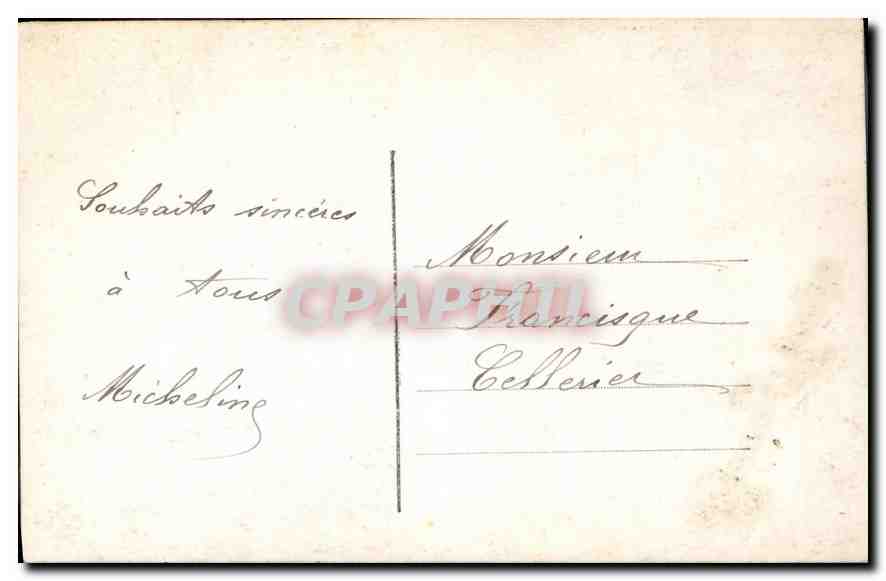 Souhaits sincères
à tous
Micheline
Monsieur
Francisque
Cellerier
CPAPHIL